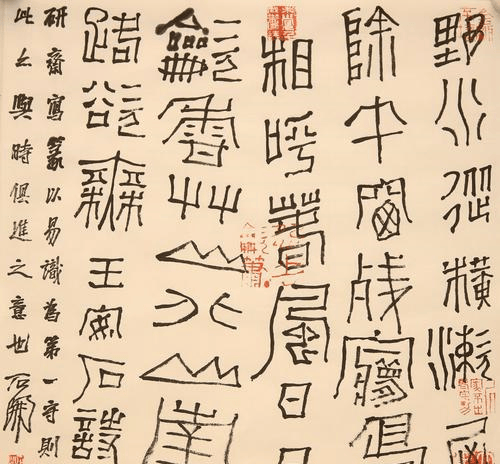 野水從橫漱屋
除午窗殘夢鳥
相呼春風日
龡香艸山北山南
路欲無王安石詩
研齋寫篆以易識為第一守則
此亦與時俱進之意也石開